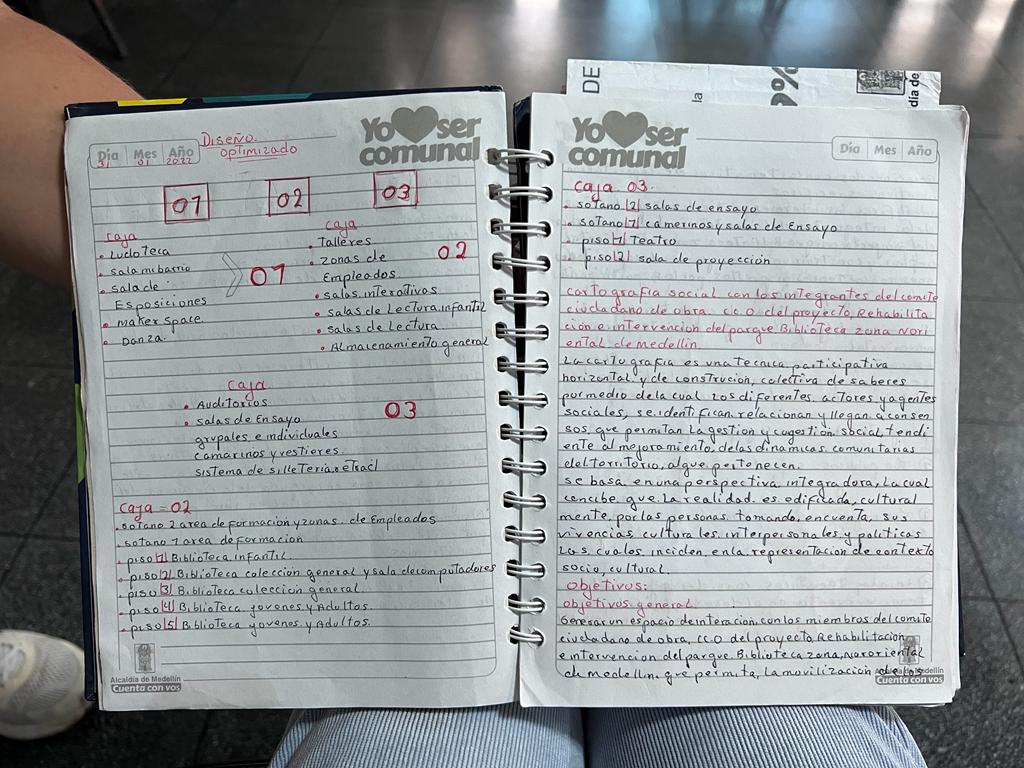 Yo ser
comunal
Día Mes Año
31 01 2022
Diseño
optimizado
01 02 03
caja
• Ludoteca
• sala mi barrio
• sala de
Esposiciones
• maker space
• Danza
01
caja
• Talleres
• zonas de
Empleados
• salas interativas
• salas de Lectura infantil
• salas de Lectura
• Almacenamiento general
02
caja
• Auditorios
• salas de Ensayo
grupales e individuales
camarinos y vestieres
sistema de silleteria retracil
03
caja = 02
• sotano 2 area de formacion y zonas de Empleados
• sotano 1 area de formacion
• piso |1| Biblioteca infantil
• piso |2| Biblioteca colección general y sala de computadores
• piso |3| Biblioteca coleccion general.
• piso |4| Biblioteca jovenes y Adultos.
• piso |5| Biblioteca jovenes y Adultos.
Alcaldía de Medellín
Cuenta con vos
DE
la
9%
día de
Yo ser
comunal
Día Mes Año
caja 03.
• sotano |2| salas de ensayo
• sotano |1| camerinos y salas de Ensayo
• piso |1| Teatro
• piso |2| sala de proyección
cartografia social con los integrantes del comite
ciudadano de obra. CCO del proyecto, Rehabilita
cion e intervencion del parque Biblioteca zona Nori
ental de Medellin
La cartografia es una tecnica participativa
horizontal y de construcion, colectiva de saberes
por medio de la cual los diferentes, actores y agentes
sociales, se identifican, relacionan y llegan a consen
sos, que permitan la gestion y cogestion social, tendi
ente al mejoramiento, de las dinamicas comunitarias
del territorio, al que pertenecen.
se basa en una perspectiva integradora, la cual
concibe, que la realidad es edificada, cultural
mente, por las personas tomando, encuenta, sus
vivencias culturales, interpersonales y politicas
Las cuales inciden, en la representacion de contexto
socio, cultural.
objetivos:
objetivos general
Generar un espacio de interacion, con los miembros del comite
ciudadano de obra, CCO del proyecto, Rehabilitacion
e intervencion del parque Biblioteca zona, Nororiental
de Medellin, que permita, la movilizacion de los
Alcaldía de Medellín
Cuenta con vos